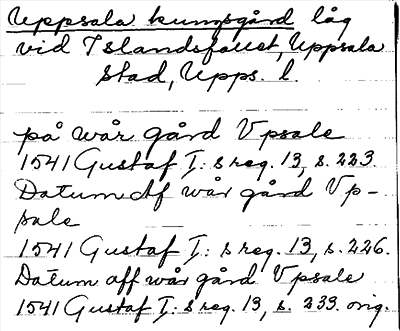 Uppsala kungsgård låg
vid Islandsfallet, Uppsala
stad, Upps. l.
på wår gård Vpsale
1541 Gustaf I:s reg. 13, s. 223.
Datum Af wår gård Vp-
sale
1541 Gustaf I:s reg. 13, s. 226.
Datum aff wår gård Vpsale
1541 Gustaf I:s reg. 13, s. 233. orig.